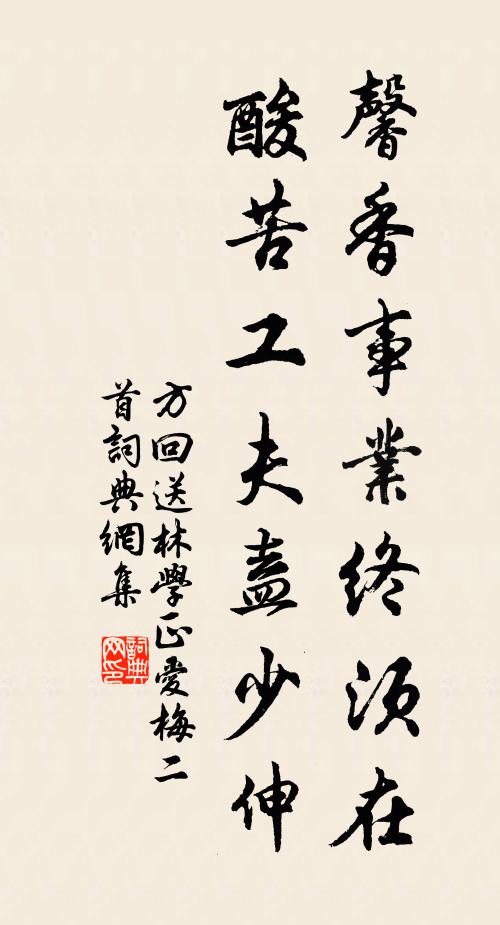 馨香事業終須在
酸苦工夫盍少伸
方回送林學正愛梅二
首詞典網集
詞典網印